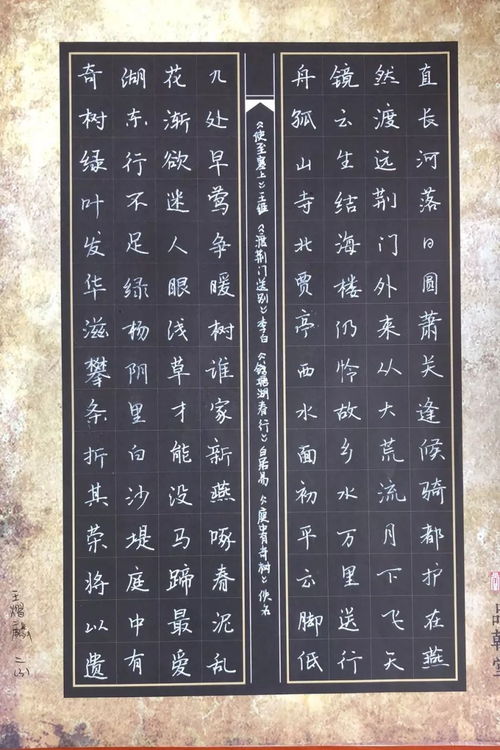 直长河落日圆萧关逢候骑都护在燕
然渡远荆门外来从大荒流月下飞天
镜云生结海楼仍怜故乡水万里送行
舟孤山寺北贾亭西水面初平云脚低
《使至塞上》王维 《渡荆门送别》李白 《钱塘湖春行》白居易 《庭中有奇树》佚名
几处早莺争暖树谁家新燕啄春泥乱
花渐欲迷人眼浅草才能没马蹄最爱
湖东行不足绿杨阴里白沙堤庭中有
奇树绿叶发华滋攀条折其荣将以遗
王熠麟